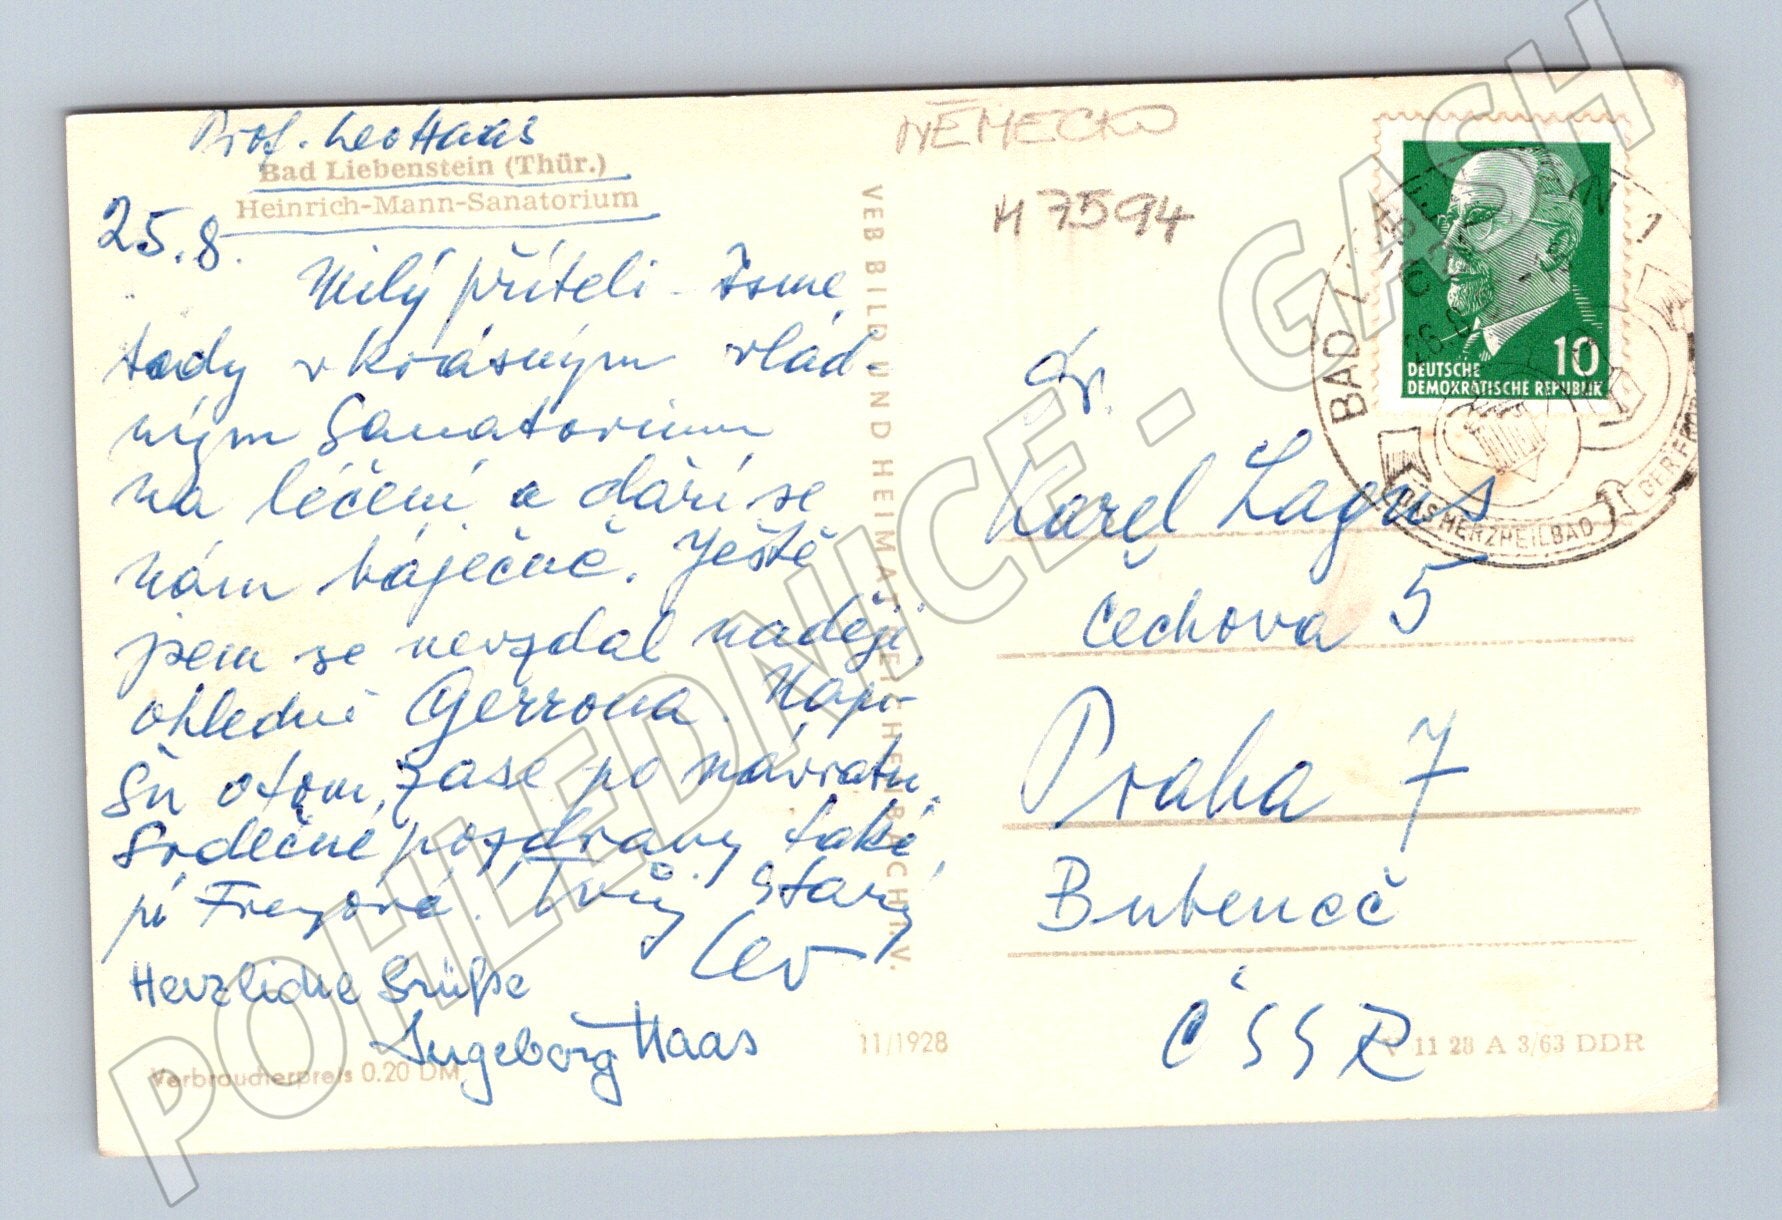 Prof. Leo Haas
Bad Liebenstein (Thür.)
Heinrich-Mann-Sanatorium
25.8.
Milý příteli - Jsme
tady v krásným vlád-
ným Sanatorium
na léčení a daří se
nám báječně. Ještě
jsem se nevzdal naději,
ohledně Gerrona. Napí-
šu o tom, zase po návratu.
Srdečné pozdravy také
pí Freyové. Tvůj starý
Leo
Herzliche Grüße
Ingeborg Haas
Verbraucherpreis 0.20 DM
11/1928
VEB BILD UND HEIMAT REICHENBACH I. V.
NĚMECKO
H 7594
DEUTSCHE
DEMOKRATISCHE REPUBLIK
10
BAD
DAS HERZHEILBAD
DER
Dr.
Karel Lagus
Čechova 5
Praha 7
Bubeneč
ČSSR
V 11 28 A 3/63 DDR
POHLEDNICE - GASH